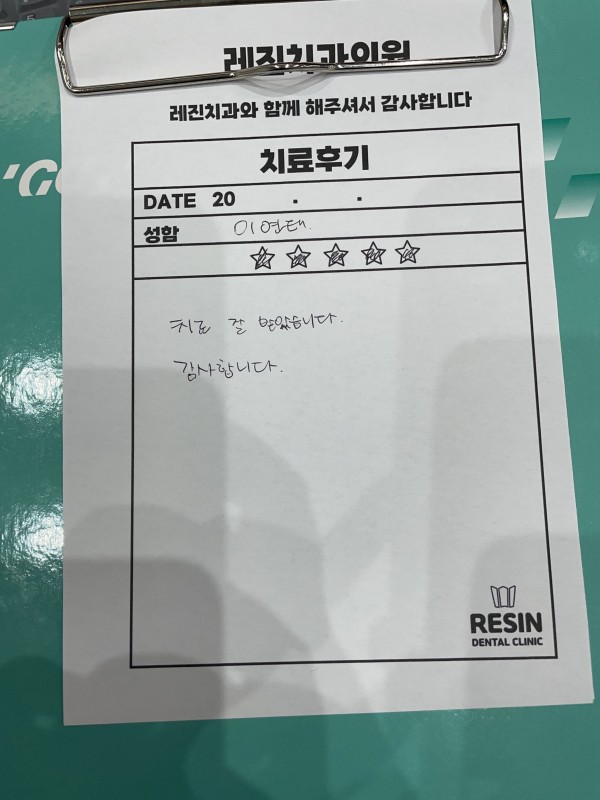 레진치과의원
레진치과와 함께 해주셔서 감사합니다
치료후기
DATE 20 . .
성함 이연태.
치료 잘 받았습니다.
감사합니다.
RESIN
DENTAL CLINIC